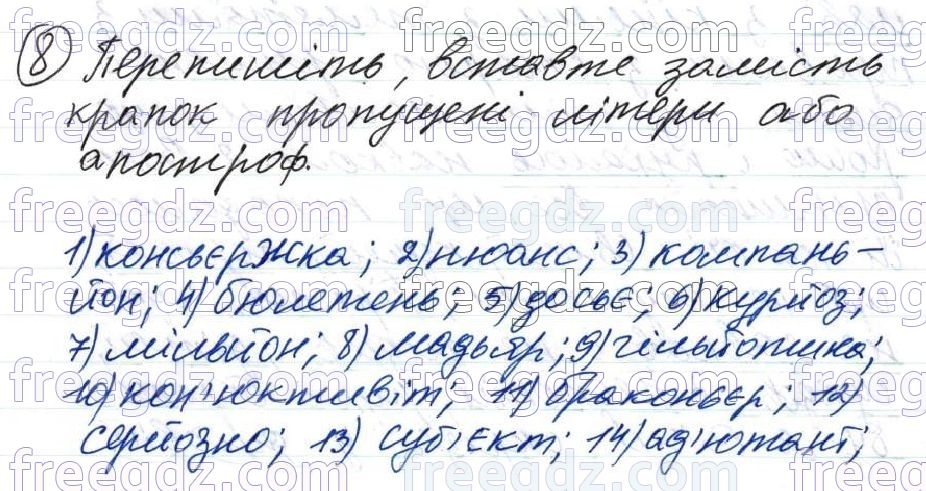 8 Перепишіть, вставте замість
крапок пропущені літери або
апостроф.
1) консьєржка; 2) нюанс; 3) компань-
йон; 4) бюлетень; 5) досьє; 6) курйоз;
7) мільйон; 8) мадьяр; 9) гільйотина;
10) кон'юктивіт; 11) браконьєр; 12)
серйозно; 13) суб'єкт; 14) ад'ютант;
freegdz.com